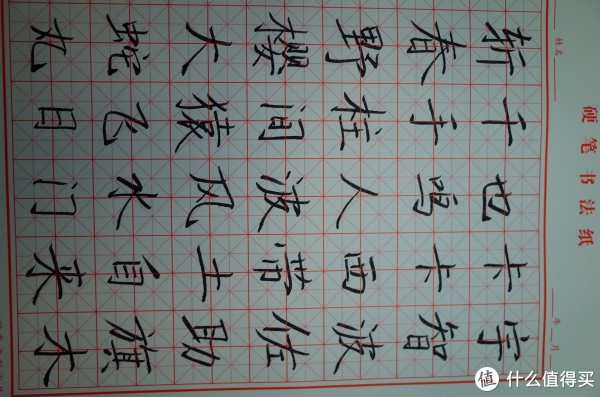 硬笔书法纸
姓名
年 月
宇智波佐助旗木
卡卡西带土自来
也鸣人波风水门
千手柱间猿飞日
斩春野樱大蛇丸
值 什么值得买